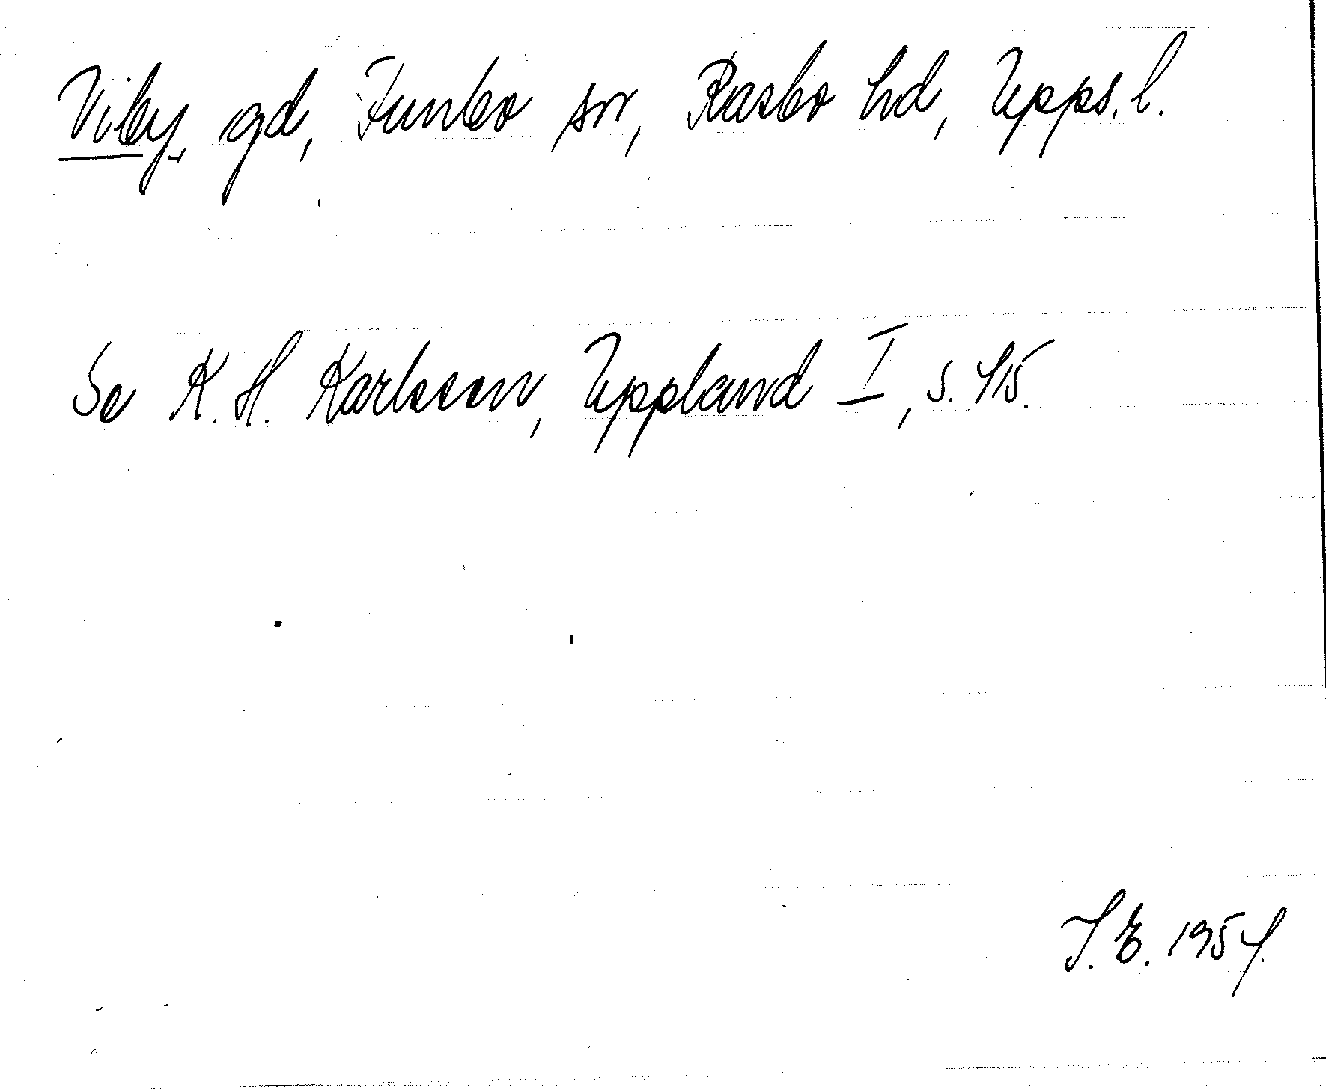 Viby, gd, Funbo sn, Rasbo hd, Upps. l.
Se K. H. Karlsson, Uppland I, s. 45.
I. E. 1954.